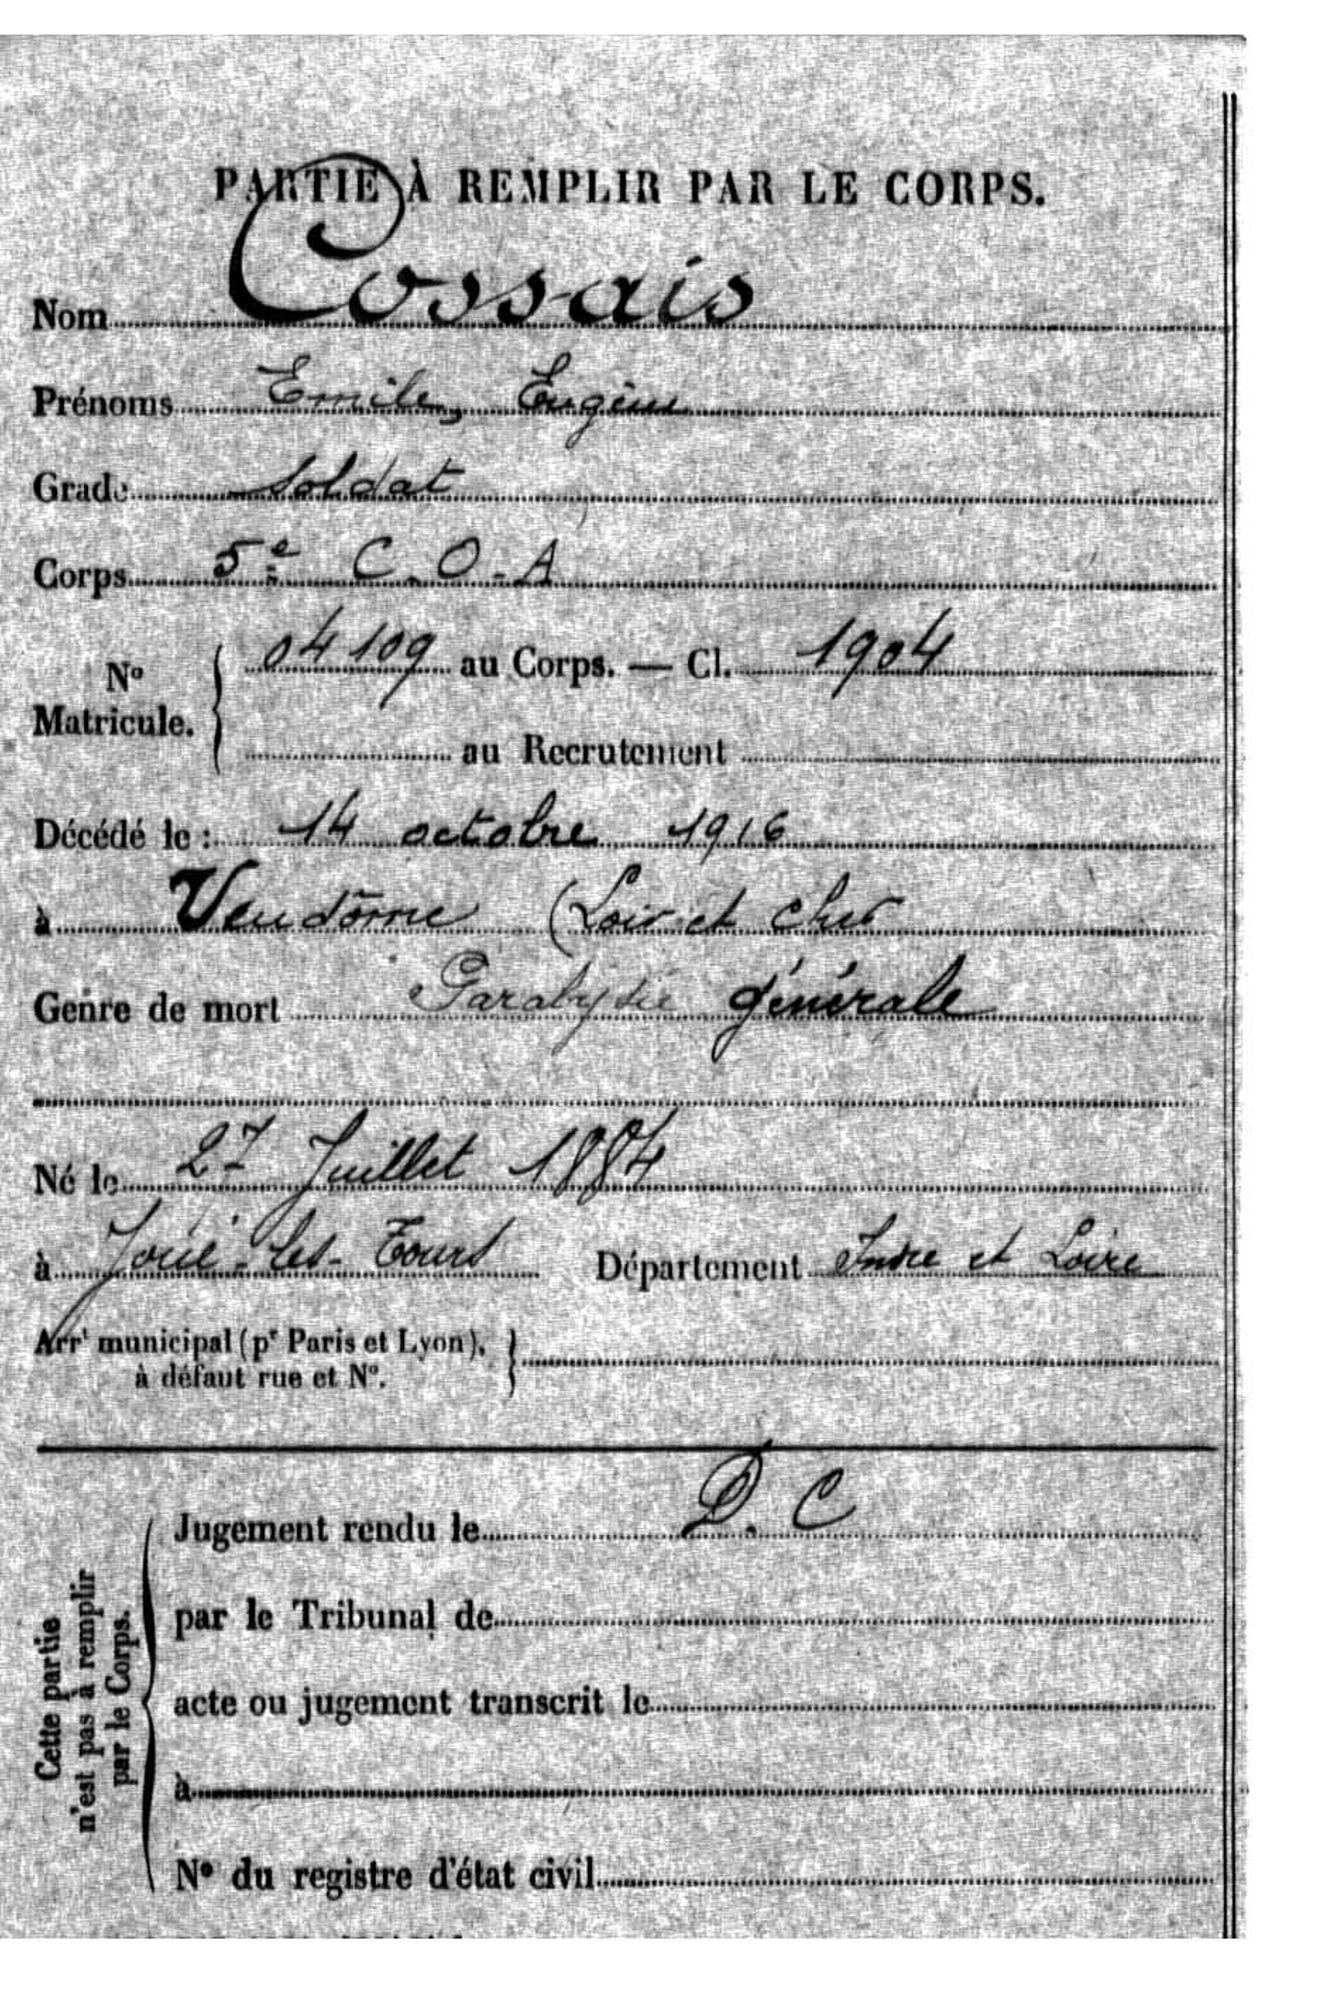 PARTIE À REMPLIR PAR LE CORPS.
Nom Cossais
Prénoms Emile, Eugène
Grade Soldat
Corps 5e C.O.A
No Matricule. 04109 au Corps. — Cl. 1904
au Recrutement
Décédé le : 14 octobre 1916
à Vendôme (Loir et cher
Genre de mort Paralysie générale
Né le 27 Juillet 1884
à Joué-les-Tours Département Indre et Loire
Arrt municipal (pr Paris et Lyon),
à défaut rue et No.
Cette partie
n'est pas à remplir
par le Corps.
Jugement rendu le D. C
par le Tribunal de
acte ou jugement transcrit le
à
No du registre d'état civil